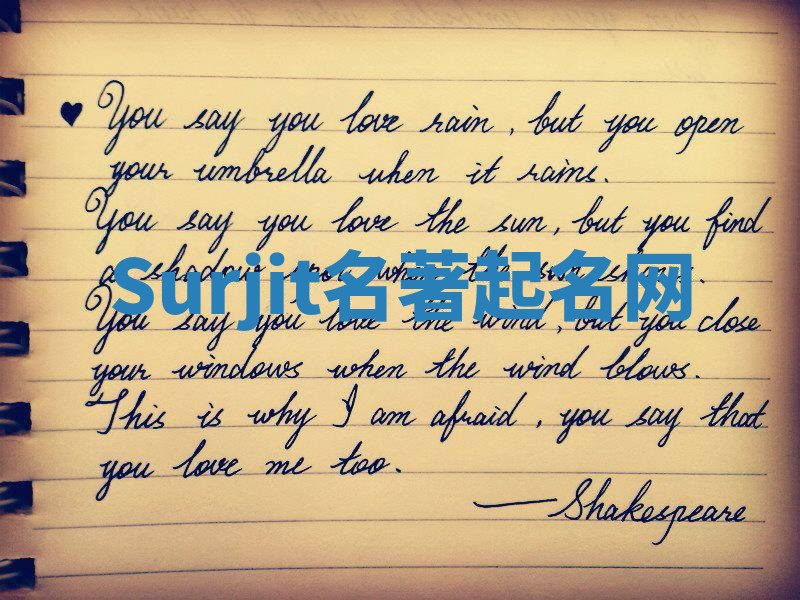 ♥ You say you love rain, but you open
your umbrella when it rains.
You say you love the sun, but you find
a shadow when the sun shines.
Surjit名著起名网
You say you love the wind, but you close
your windows when the wind blows.
This is why I am afraid, you say that
you love me too.
— Shakespeare